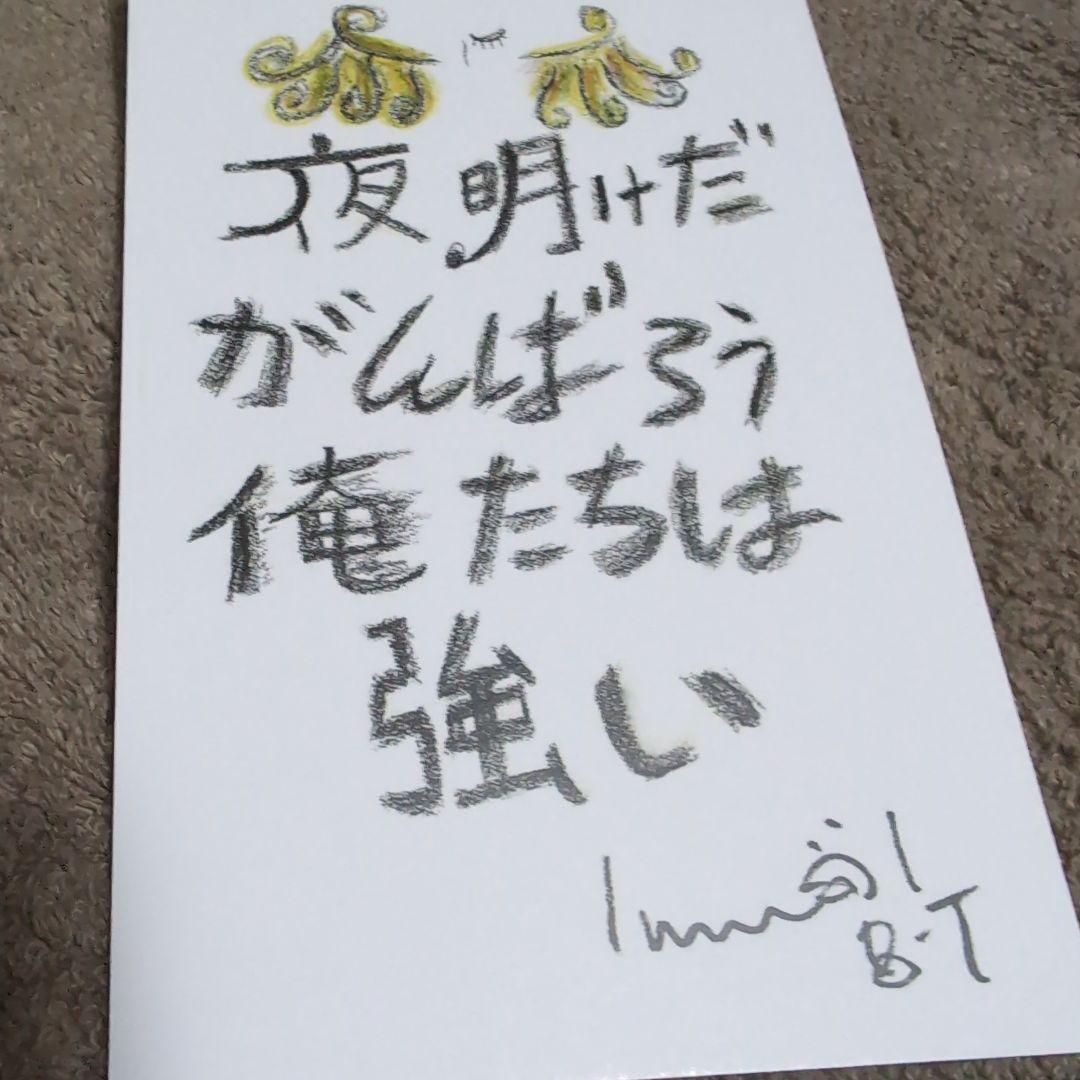 夜明けだ
がんばろう
俺たちは
強い
B.T